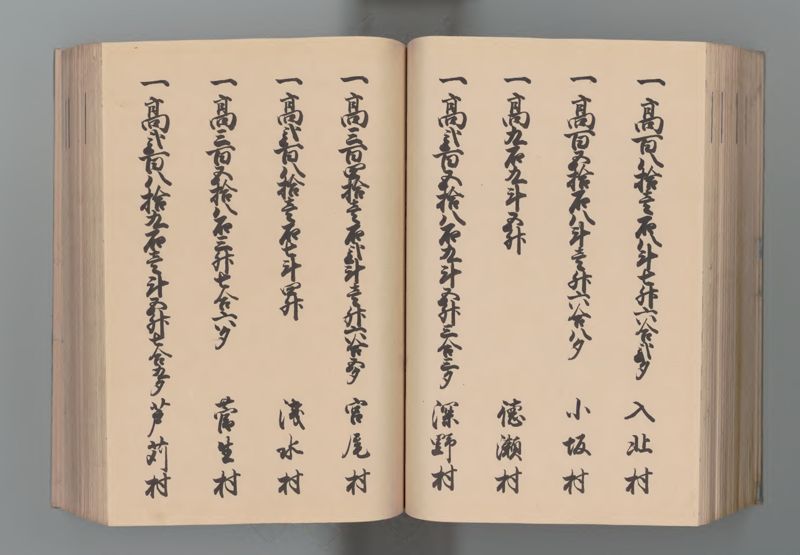 一高百八拾壱石八斗七升六合弐夕 入北村
一高百五拾石八斗壱升六合八夕 小坂村
一高九石九斗五升 徳瀬村
一高弐百五拾八石九斗五升三合三夕 深野村
一高三百四拾壱石弐斗壱升六合五夕 宮尾村
一高弐百八拾壱石七斗四升 浅水村
一高三百五拾八石三升七合六夕 菅生村
一高弐百八拾九石壱斗五升七合五夕 芦苅村